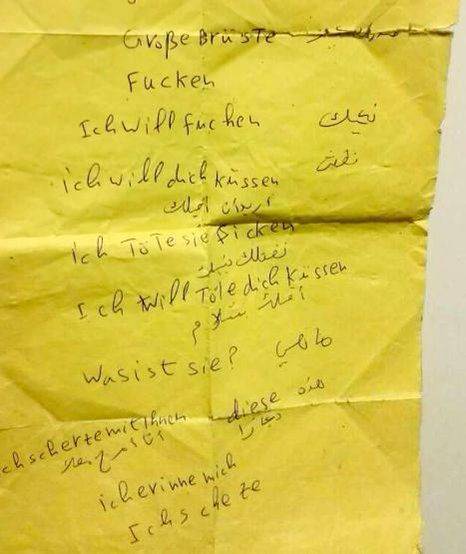 Große Brüste
Fucken
Ich will fucken نيك
ich will dich küssen
اريدان اقبلك
ich Töte sie ficken
Ich will Töte dich küssen
was ist sie? ماهي
ch scherze mit Ihnen diese هذه
icherinnemich
Ichscheze